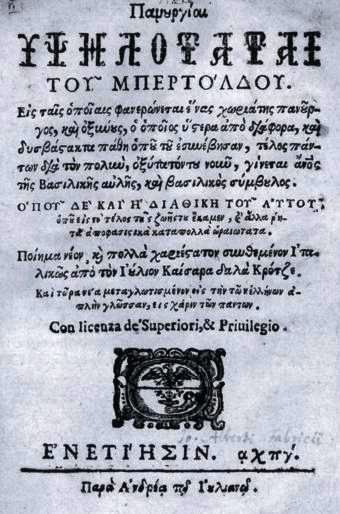 Πανουργίαι
ΥΨΗΛΟΤΑΤΑΙ
ΤΟΥ ΜΠΕΡΤΟΛΔΟΥ.
Εἰς ταῖς ὁποῖαις φανερώνεται ἕνας χωριάτης πανοῦρ-
γος, καὶ ὀξύνους, ὁ ὁποῖος ὕστερα ἀπὸ διάφορα, καὶ
δυσβάσακτα πάθη ὁποῦ τοῦ ἐσυνέβησαν, τέλος πάν-
των διὰ τὸν πολιὺν, ὀξύτατόντε νοῦν, γίνεται ἄνος
τῆς Βασιλικῆς αὐλῆς, καὶ βασιλικὸς σύμβουλος.
ΟΠΟΥ ΔΕ ΚΑΙ Η ΔΙΑΘΙΚΗ ΤΟΥ ΑΥΤΟΥ
ὁποῦ εἰς τὸ τέλος τῆς ζωῆς του ἔκαμεν, καὶ ἄλλα ῥη-
τὰ ἀποφασιστικὰ καταπολλὰ ὡραιώτατα.
Ποίημα νέον, καὶ πολλὰ χαριέστατον συνθεμένον Ἰτα-
λικῶς ἀπὸ τὸν Ἰούλιον Καίσαρα δαλὰ Κρότζε.
Καὶ τῶρα νέα μεταγλωτισμένον εἰς τὴν τῶν ἑλλήνων ἁ-
πλὴν γλῶσσαν, εἰς χάριν τῶν πάντων.
Con licenza de' Superiori, & Priuilegio.
ΕΝΕΤΙΗΣΙΝ. αχπγ.
Παρὰ Ἀνδρέᾳ τῷ Ἰουλιανῷ.